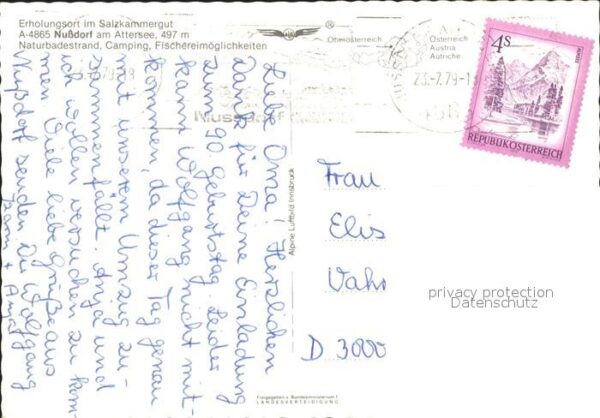 Erholungsort im Salzkammergut
A-4865 Nußdorf am Attersee, 497 m
Naturbadestrand, Camping, Fischereimöglichkeiten
Oberösterreich
Österreich
Austria
Autriche
23.-7.79-1
4S
REPUBLIK ÖSTERREICH
Liebe Oma! Herzlichen
Dank für Deine Einladung
zum 90. Geburtstag. Leider
kann Wolfgang nicht mit-
kommen, da dieser Tag genau
mit unserem Umzug zu-
sammenfällt. Anja und
ich wollen versuchen zu kom-
men. Viele liebe Grüße aus
Nußdorf senden Dir Wolfgang
Alpine Luftbild Innsbruck
Frau
Elis
Vahr
D 3000
privacy protection
Datenschutz
Freigegeben v. Bundesministerium f.
LANDESVERTEIDIGUNG